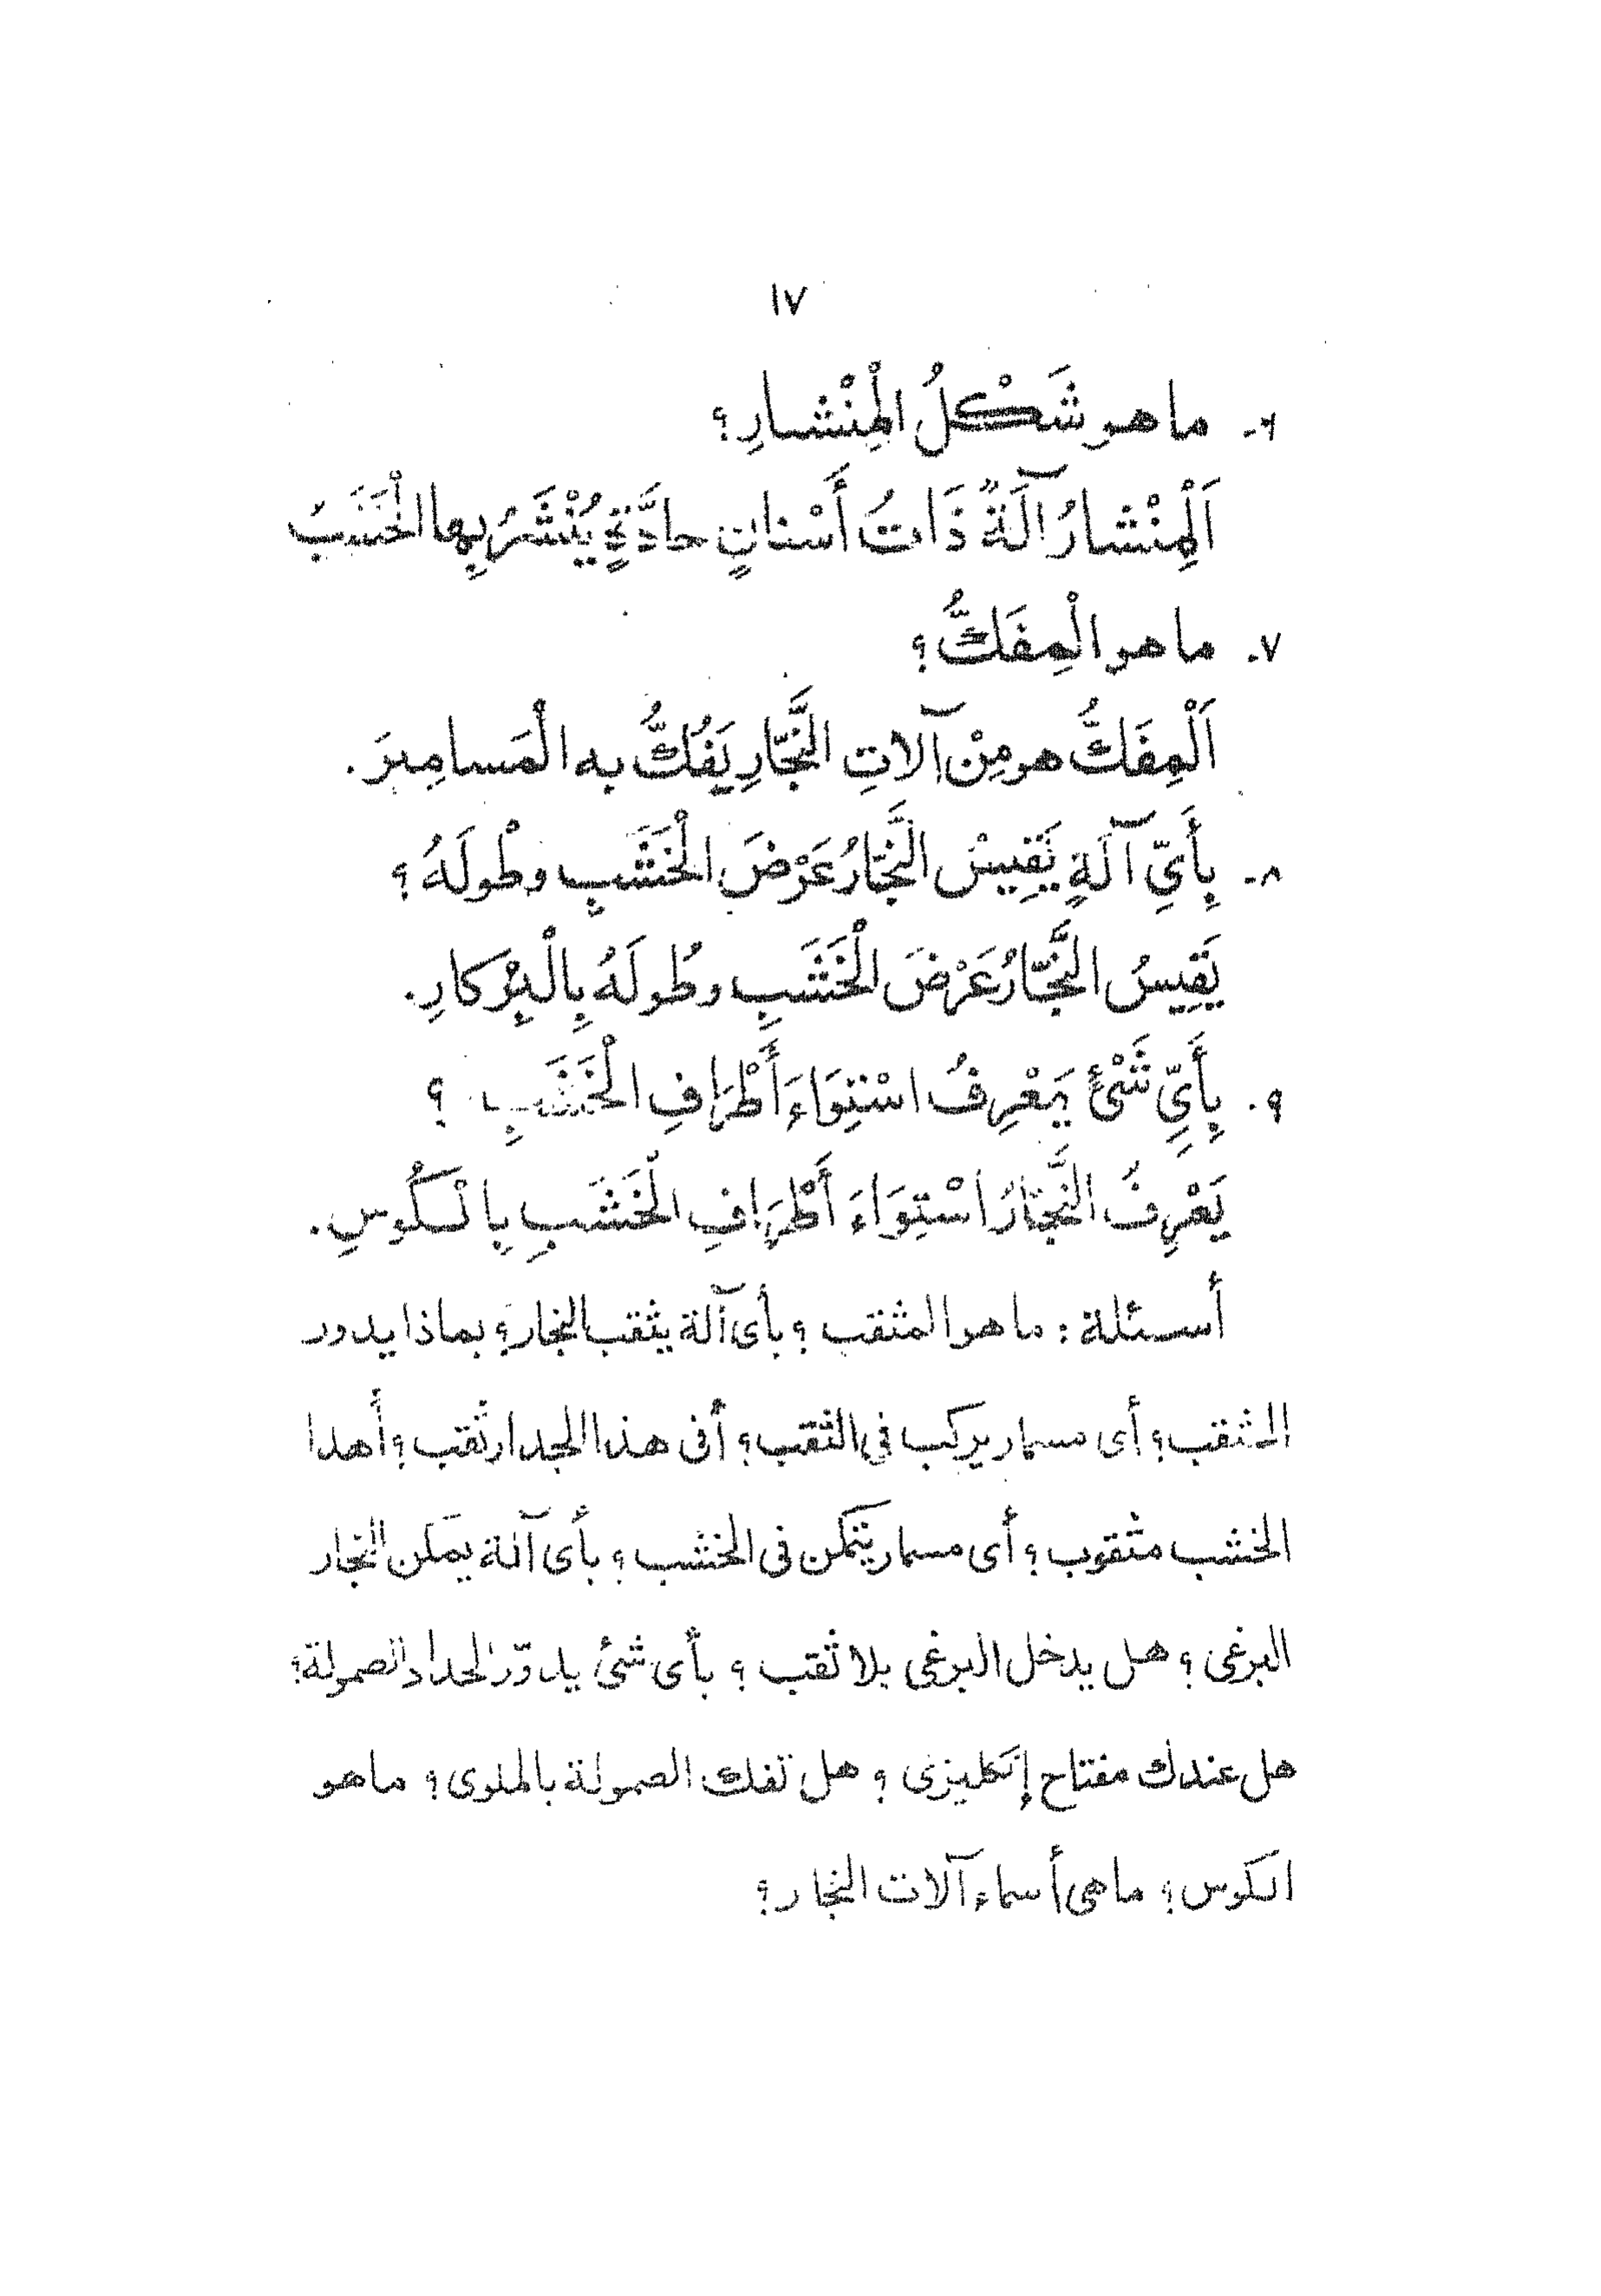 ١٧
٦- ما هو شَكْلُ الْمِنْشارِ؟
اَلْمِنْشارُ آلَةٌ ذَاتُ أَسْنانٍ حادَّةٍ يُنْشَرُ بِها الْخَشَبُ
٧. ما هو الْمِفَكُّ؟
اَلْمِفَكُّ هو مِنْ آلاتِ النَّجّارِ يَفُكُّ به الْمَسامِيرَ.
٨- بِأَيِّ آلَةٍ يَقِيسُ النَّجّارُ عَرْضَ الْخَشَبِ وطُولَهُ؟
يَقِيسُ النَّجّارُ عَرْضَ الْخَشَبِ وطُولَهُ بِالْبِرْكارِ.
٩. بِأَيِّ شَيْئٍ يَعْرِفُ اسْتِوَاءَ أَطْرَافِ الْخَشَبِ ؟
يَعْرِفُ النَّجّارُ اسْتِوَاءَ أَطْرَافِ الْخَشَبِ بِالْكُوسِ.
أسئلة : ما هو المثقب ؟ بأى آلة يثقب النجار؟ بماذا يدور
المثقب؟ أى مسمار يركب فى الثقب؟ أفى هذا الجدار ثقب؟ أهذا
الخشب مثقوب ؟ أى مسمار يتمكن فى الخشب ؟ بأى آلة يمكن النجار
البرغى ؟ هل يدخل البرغى بلا ثقب ؟ بأى شئ يدوّر الحداد الصمولة؟
هل عندك مفتاح إنكليزى ؟ هل تفك الصمولة بالملوى؟ ما هو
الكوس؟ ما هى أسماء آلات النجار؟